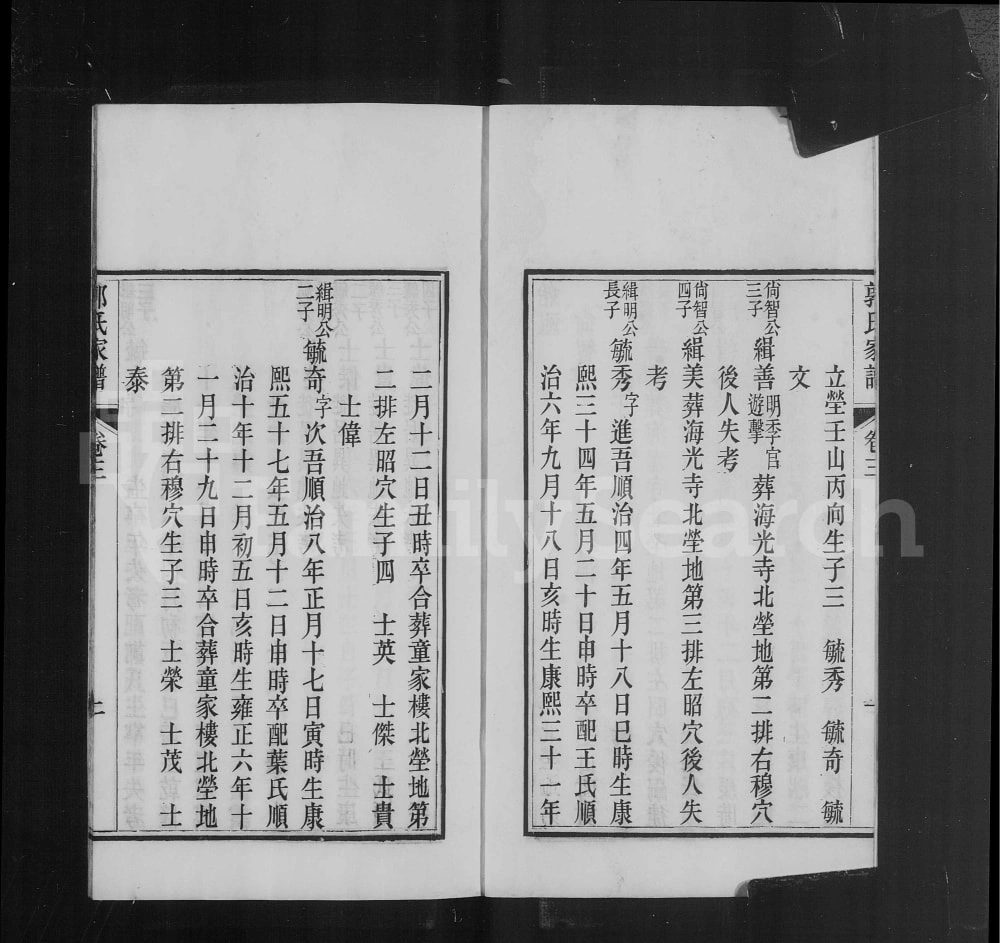 郭氏家譜 卷三 一
立塋壬山丙向生子三 毓秀 毓奇 毓
文
尙智公三子 緝善 明季官遊擊 葬海光寺北塋地第二排右穆穴
後人失考
尙智公四子 緝美葬海光寺北塋地第三排左昭穴後人失
考
緝明公長子 毓秀 字 進吾順治四年五月十八日巳時生康
熙三十四年五月二十日申時卒配王氏順
治六年九月十八日亥時生康熙三十一年
二月十二日丑時卒合葬童家樓北塋地第
二排左昭穴生子四 士英 士傑 士貴
士偉
緝明公二子 毓奇 字 次吾順治八年正月十七日寅時生康
熙五十七年五月十二日申時卒配葉氏順
治十年十二月初五日亥時生雍正六年十
一月二十九日申時卒合葬童家樓北塋地
第二排右穆穴生子三 士榮 士茂 士
泰
郭氏家譜 卷三 二
FamilySearch